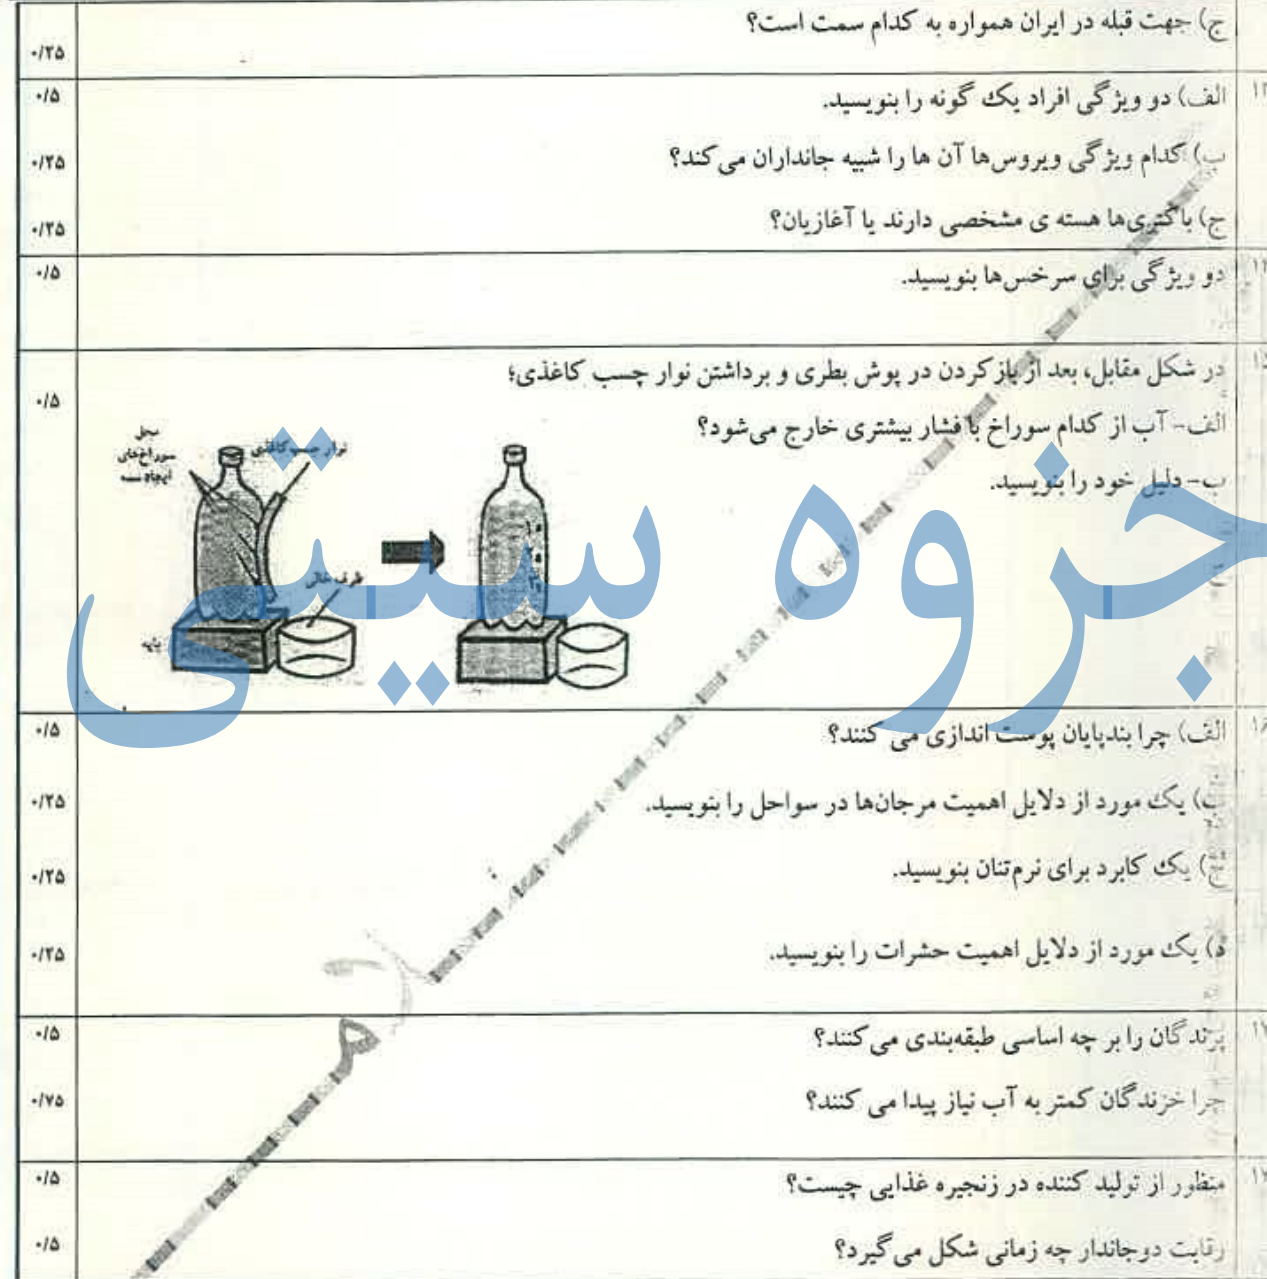 ج) جهت قبله در ایران همواره به کدام سمت است؟
۰/۲۵
الف) دو ویژگی افراد یک گونه را بنویسید.
۰/۵
ب) کدام ویژگی ویروس‌ها آن ها را شبیه جانداران می‌کند؟
۰/۲۵
ج) باکتری‌ها هسته ی مشخصی دارند یا آغازیان؟
۰/۲۵
دو ویژگی برای سرخس‌ها بنویسید.
۰/۵
در شکل مقابل، بعد از باز کردن در پوش بطری و برداشتن نوار چسب کاغذی؛
۰/۵
الف- آب از کدام سوراخ با فشار بیشتری خارج می‌شود؟
ب- دلیل خود را بنویسید.
محل
سوراخ‌های
ایجاد شده
نوار چسب کاغذی
ظرف خالی
پایه
جزوه سیتی
۱۶
الف) چرا بندپایان پوست اندازی می کنند؟
۰/۵
ب) یک مورد از دلایل اهمیت مرجان‌ها در سواحل را بنویسید.
۰/۲۵
ج) یک کابرد برای نرم‌تنان بنویسید.
۰/۲۵
د) یک مورد از دلایل اهمیت حشرات را بنویسید.
۰/۲۵
۱۷
پرندگان را بر چه اساسی طبقه‌بندی می‌کنند؟
۰/۵
چرا خزندگان کمتر به آب نیاز پیدا می کنند؟
۰/۷۵
منظور از تولید کننده در زنجیره غذایی چیست؟
۰/۵
رقابت دوجاندار چه زمانی شکل می‌گیرد؟
۰/۵